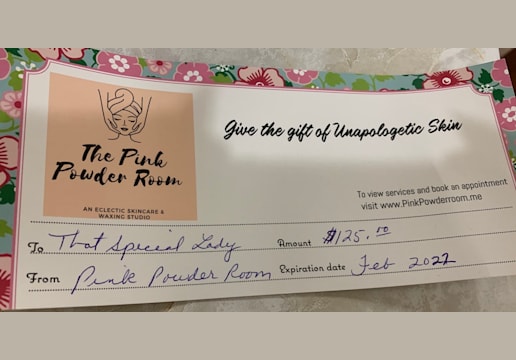 Give the gift of Unapologetic Skin
The Pink
Powder Room
AN ECLECTIC SKINCARE &
WAXING STUDIO
To view services and book an appointment
visit www.PinkPowderroom.me
To That Special Lady Amount $125.00
From Pink Powder Room Expiration date Feb 2022